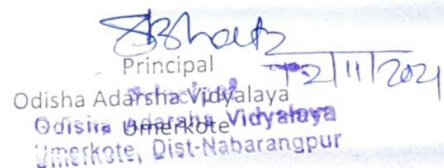 Principal
12/11/2021
Odisha Adarsha Vidyalaya
Umerkote
Principal
Odisha Adarsha Vidyalaya
Umerkote, Dist-Nabarangpur